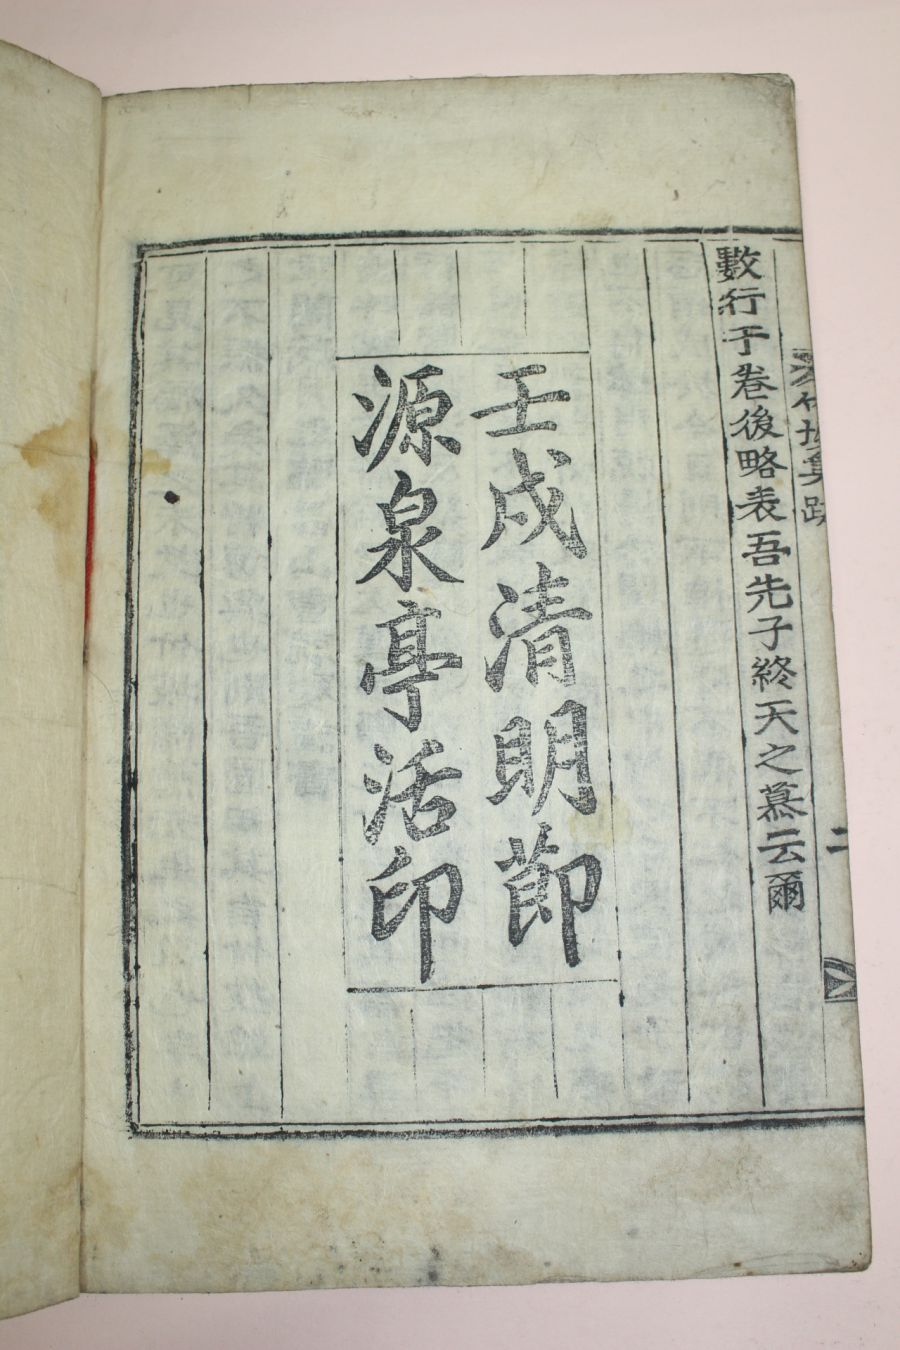 數行于卷後略表吾先子終天之慕云爾
壬戌清明節
源泉亭活印
集跋
二